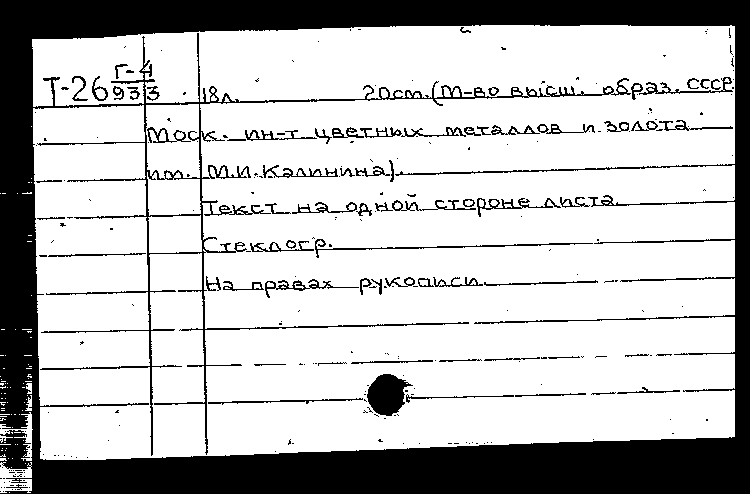 Т-26 Г-4
933 18л. 20ст. (М-во высш. образ. СССР
Моск. ин-т цветных металлов и золота
им. М.И.Калинина).
Текст на одной стороне листа.
Стеклогр.
На правах рукописи.